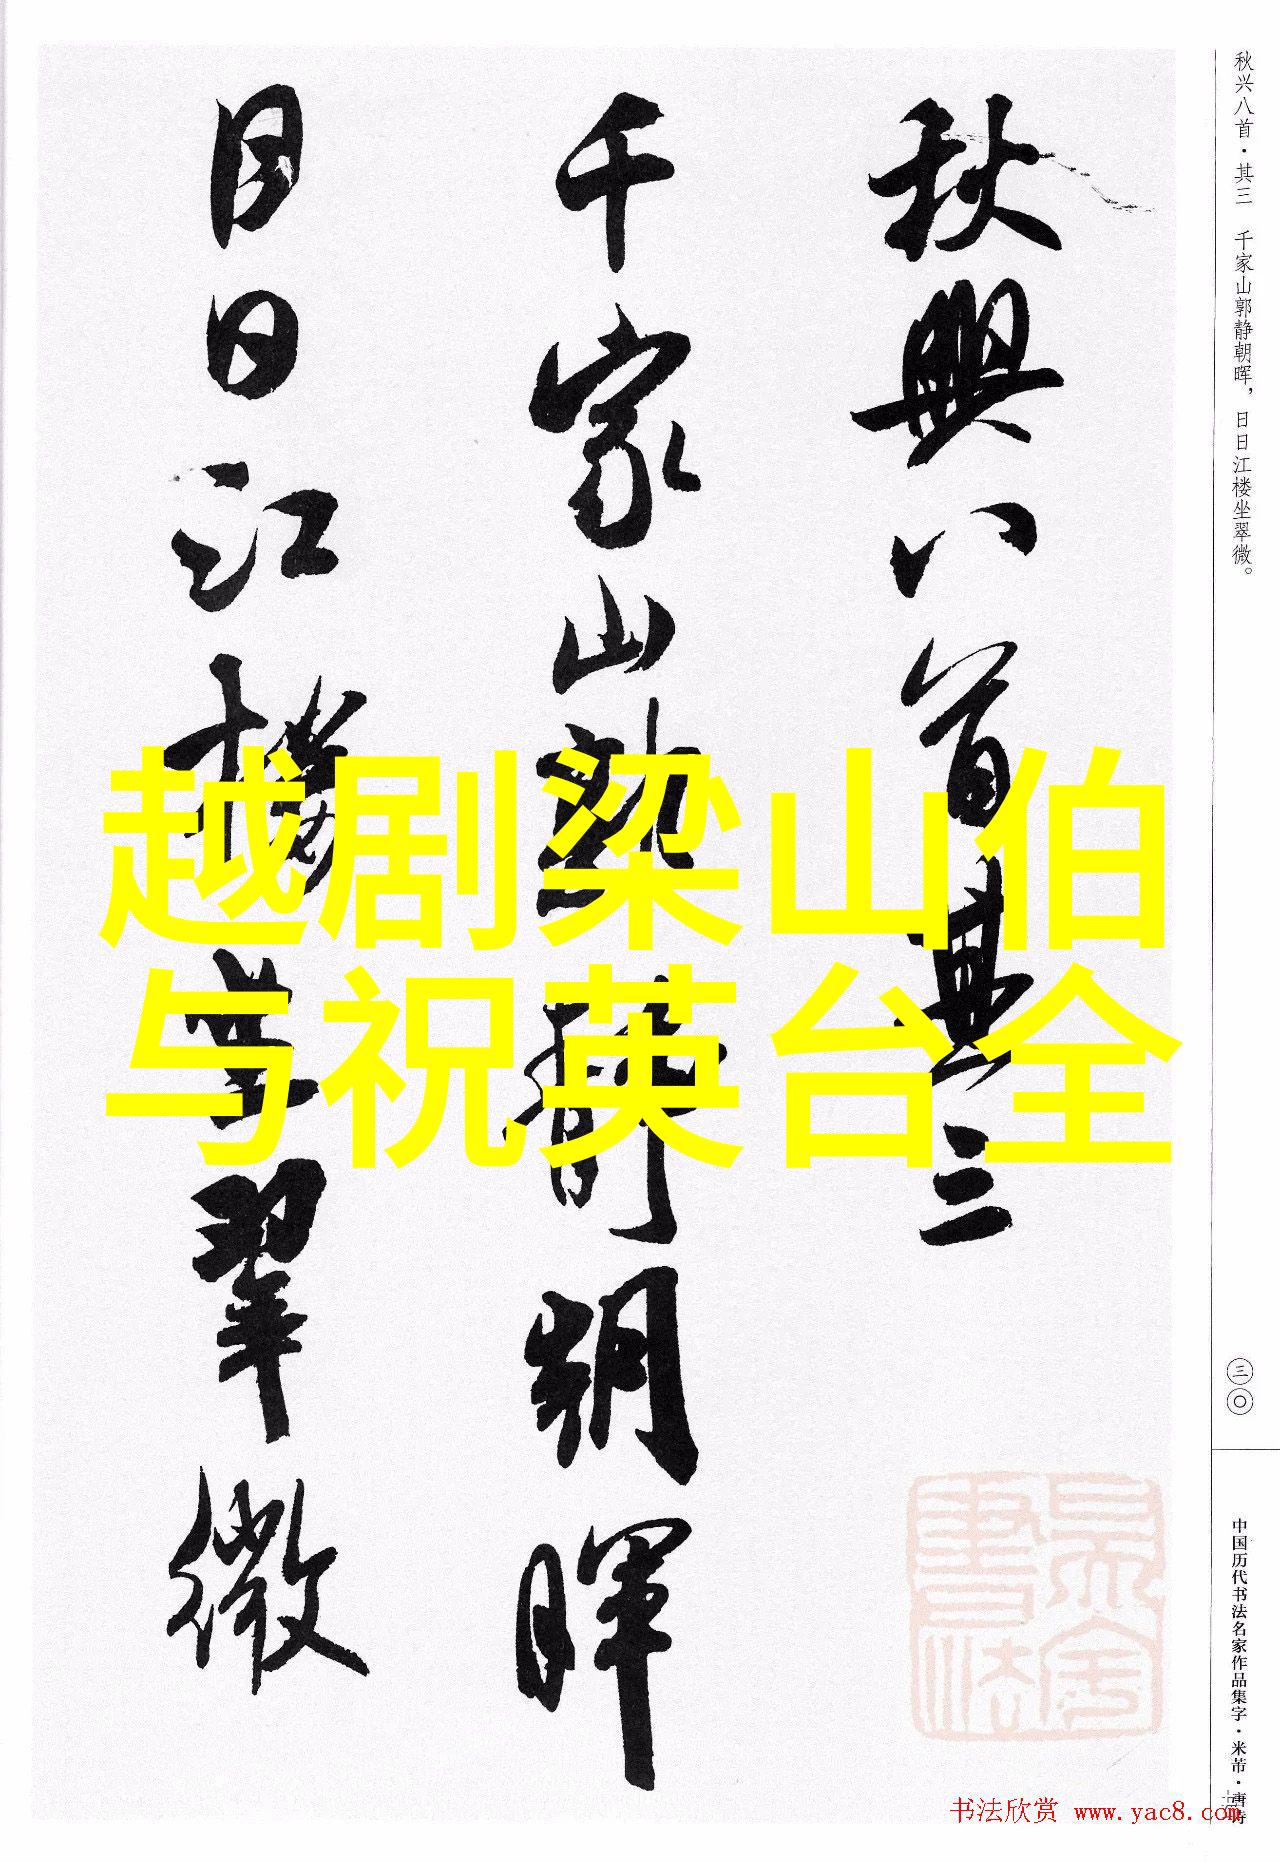 秋兴八首·其三 千家山郭静朝晖，日日江楼坐翠微。
秋興八首其三
千家山郭靜朝暉
日日江樓坐翠微
越剧梁山伯
与祝英台全
三〇
中国历代书法名家作品集字·米芾·唐诗
书法欣赏 www.yac8.com